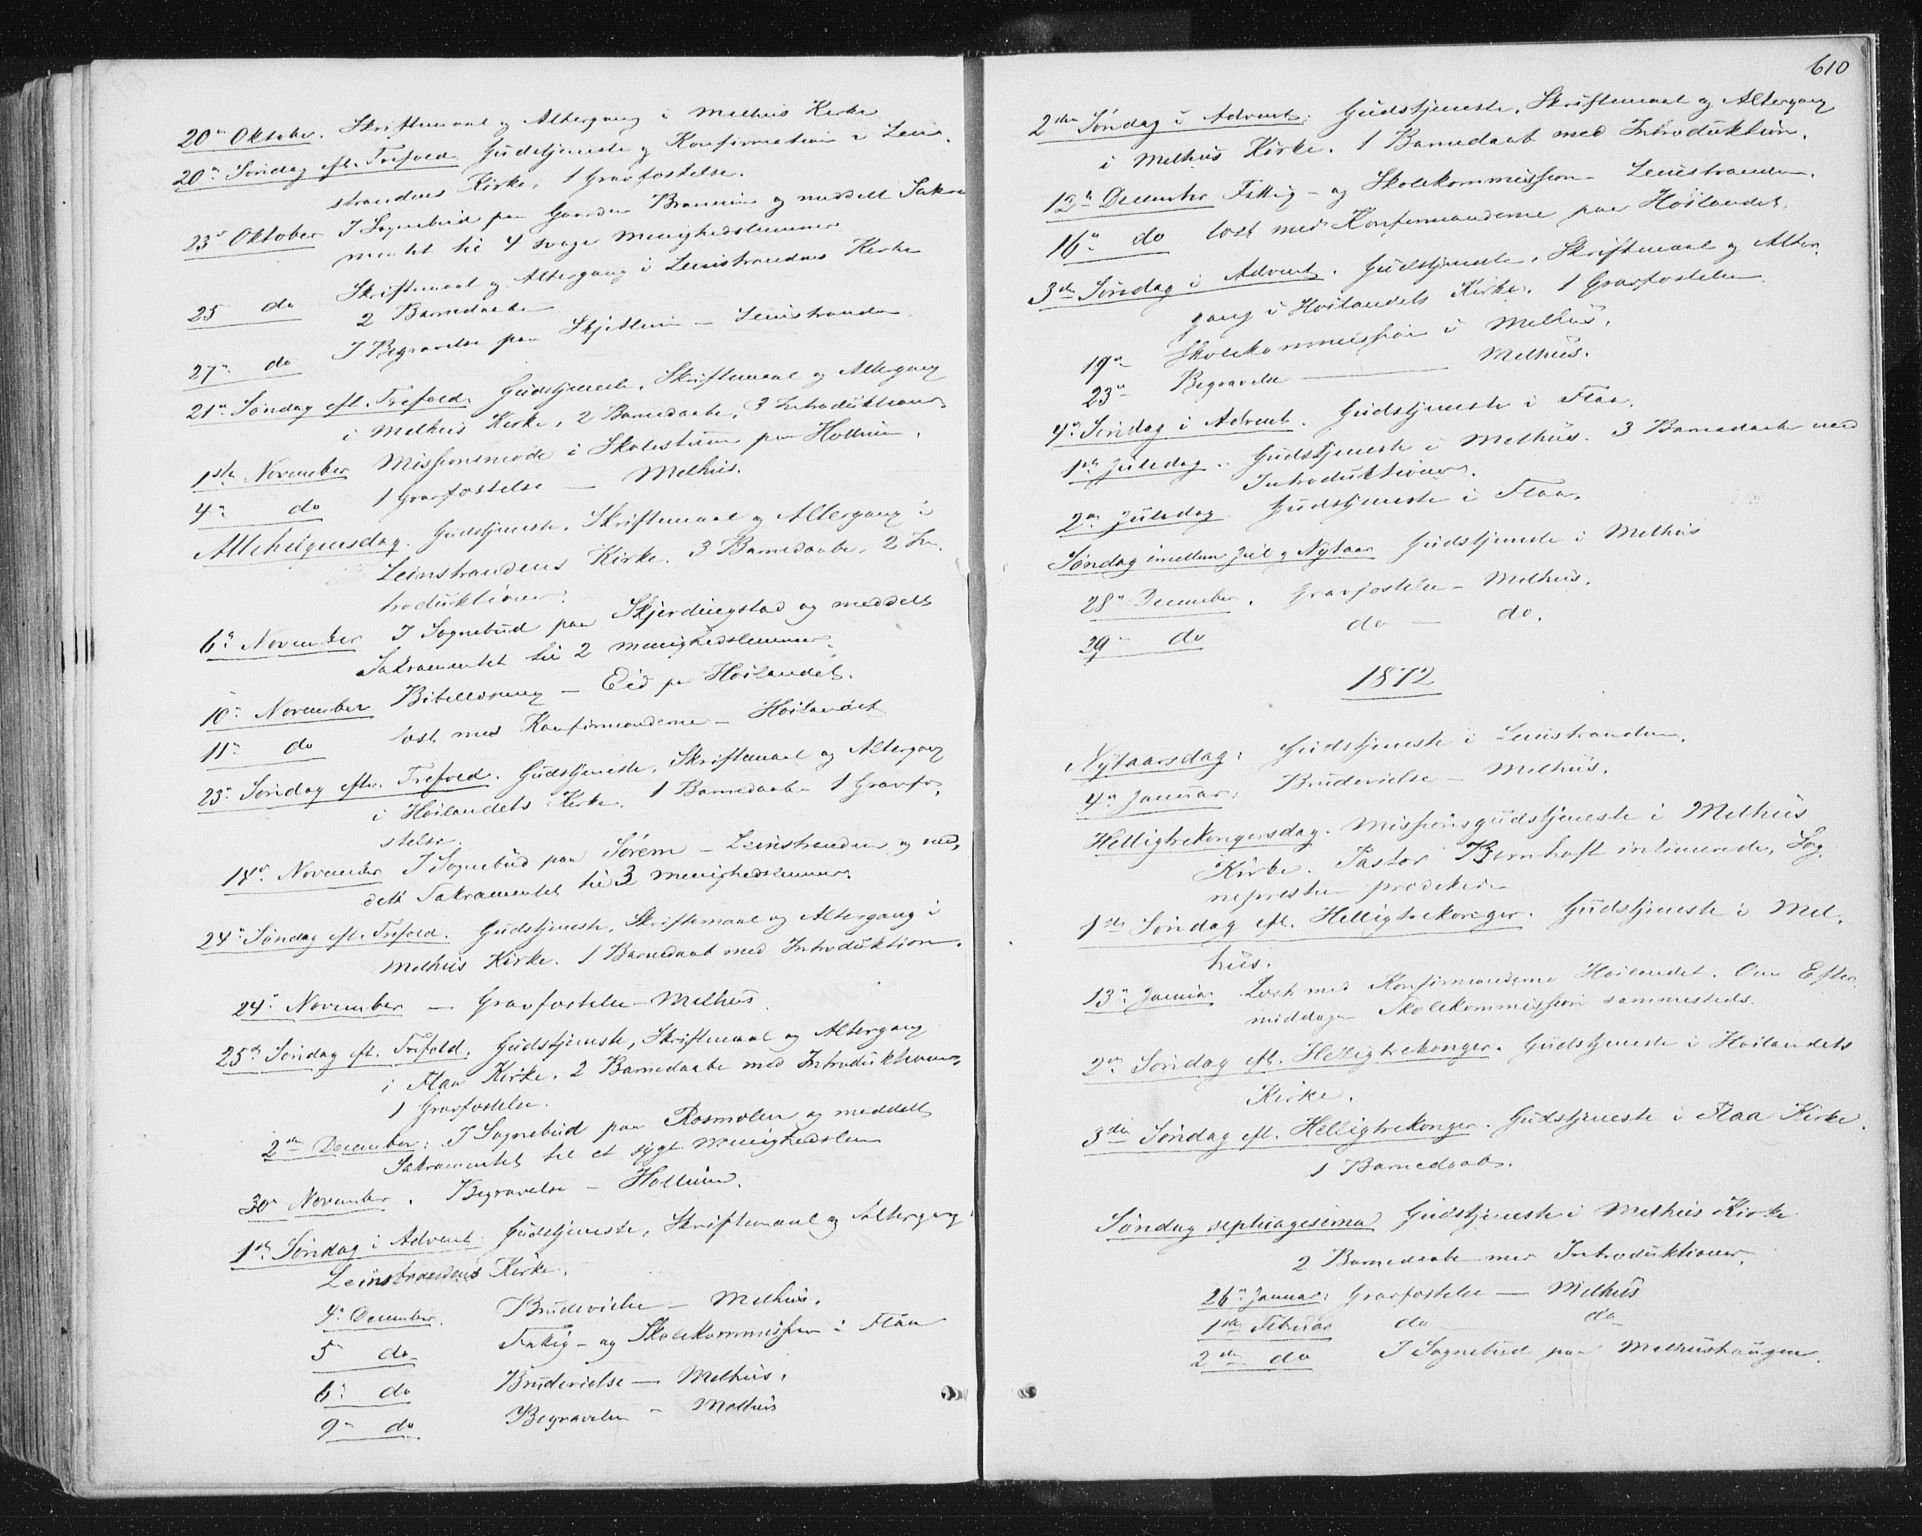 20de Oktober. Skriftemaal og Altergang i Melhus Kirke
20de Søndag eft. Trefold. Gudstjeneste og Konfirmation i Lein-
strandens Kirke, 1 Gravfæstelse.
23de Oktober I Sognebud paa Gaarden og meddelt Sakra
mentet til 4 svage Menighedslemmer
25 do Skriftemaal og Altergang i Leinstrandens Kirke
2 Barnedaabe
27de do I Begravelse paa Skjetlein – Leinstranden
21de Søndag eft. Trefold. Gudstjeneste, Skriftemaal og Altergang
i Melhus Kirke, 2 Barnedaabe, 3 Introduktioner
1ste November Missionsmøde i Skolestuen paa Hollum.
4de do 1 Gravfæstelse – Melhus.
Allehelgensdag. Gudstjeneste, Skriftemaal og Altergang i
Leinstrandens Kirke. 3 Barnedaabe, 2 In-
troduktioner.
6te November I Sognebud paa Skjerdingstad og meddelt
Sakramentet til 2 Menighedslemmer.
10de November Bibellæsning – Eid paa Høilandet.
11te do læst med Konfirmanderne – Høilandet
23de Søndag efter Trefold. Gudstjeneste, Skriftemaal og Altergang
i Høilandets Kirke. 1 Barnedaab 1 Gravfæ-
stelse.
14de November I Sognebud paa Sørem – Leinstranden og med-
delt Sakramentet til 3 Menighedslemmer.
24de Søndag eft. Trefold. Gudstjeneste, Skriftemaal og Altergang i
Melhus Kirke. 1 Barnedaab med Introduktion.
24de November – Gravfæstelse – Melhus
25de Søndag eft. Trefold. Gudstjeneste, Skriftemaal og Altergang
i Flaa Kirke. 2 Barnedaabe med Introduktioner,
1 Gravfæstelse.
2den December: I Sognebud paa Rosmolen og meddelt
Sakramentet til et sygt Menighedslem
30te November. Begravelse – Hollum.
1ste Søndag i Advent. Gudstjeneste, Skriftemaal og Altergang i
Leinstrandens Kirke.
4de December. Brudevielse – Melhus.
5 do Fattig- og Skolekommission i Flaa
6te do Brudevielse – Melhus.
9de do Begravelse – Melhus
610
2den Søndag i Advent: Gudstjeneste, Skriftemaal og Altergang
i Melhus Kirke. 1 Barnedaab med Introduktion.
12te December Fattig- og Skolekommission – Leinstranden.
16de do læst med Konfirmanderne paa Høilandet.
3die Søndag i Advent. Gudstjeneste, Skriftemaal og Alter-
gang i Høilandets Kirke. 1 Gravfæstelse
19de Skolekommission i Melhus.
23de Begravelse – Melhus.
4de Søndag i Advent. Gudstjeneste i Flaa.
1ste Juledag. Gudstjeneste i Melhus. 3 Barnedaabe med
Introduktioner.
2den Juledag Gudstjeneste i Flaa.
Søndag imellem Jul og Nytaar Gudstjeneste i Melhus
28de December. Gravfæstelse – Melhus.
29de do do – do.
1872
Nytaarsdag: Gudstjeneste i Leinstranden.
4de Januar: Brudevielse – Melhus.
Helligtrekongersdag. Missionsgudstjeneste i Melhus
Kirke. Pastor Bernhoft intimerede, Sog-
nepresten prædikede
1ste Søndag eft. Helligtrekonger. Gudstjeneste i Mel-
hus.
13de Januar Læst med Konfirmanderne Høilandet. Om Efter-
middagen Skolekommission sammesteds.
2den Søndag eft. Helligtrekonger. Gudstjeneste i Høilandets
Kirke.
3die Søndag eft. Helligtrekonger. Gudstjeneste i Flaa Kirke.
1 Barnedaab.
Søndag septuagesima Gudstjeneste i Melhus Kirke
2 Barnedaabe med Introduktioner.
26de Januar: Gravfæstelse – Melhus
1ste Februar do do
2den do I Sognebud paa Melhushaugen.